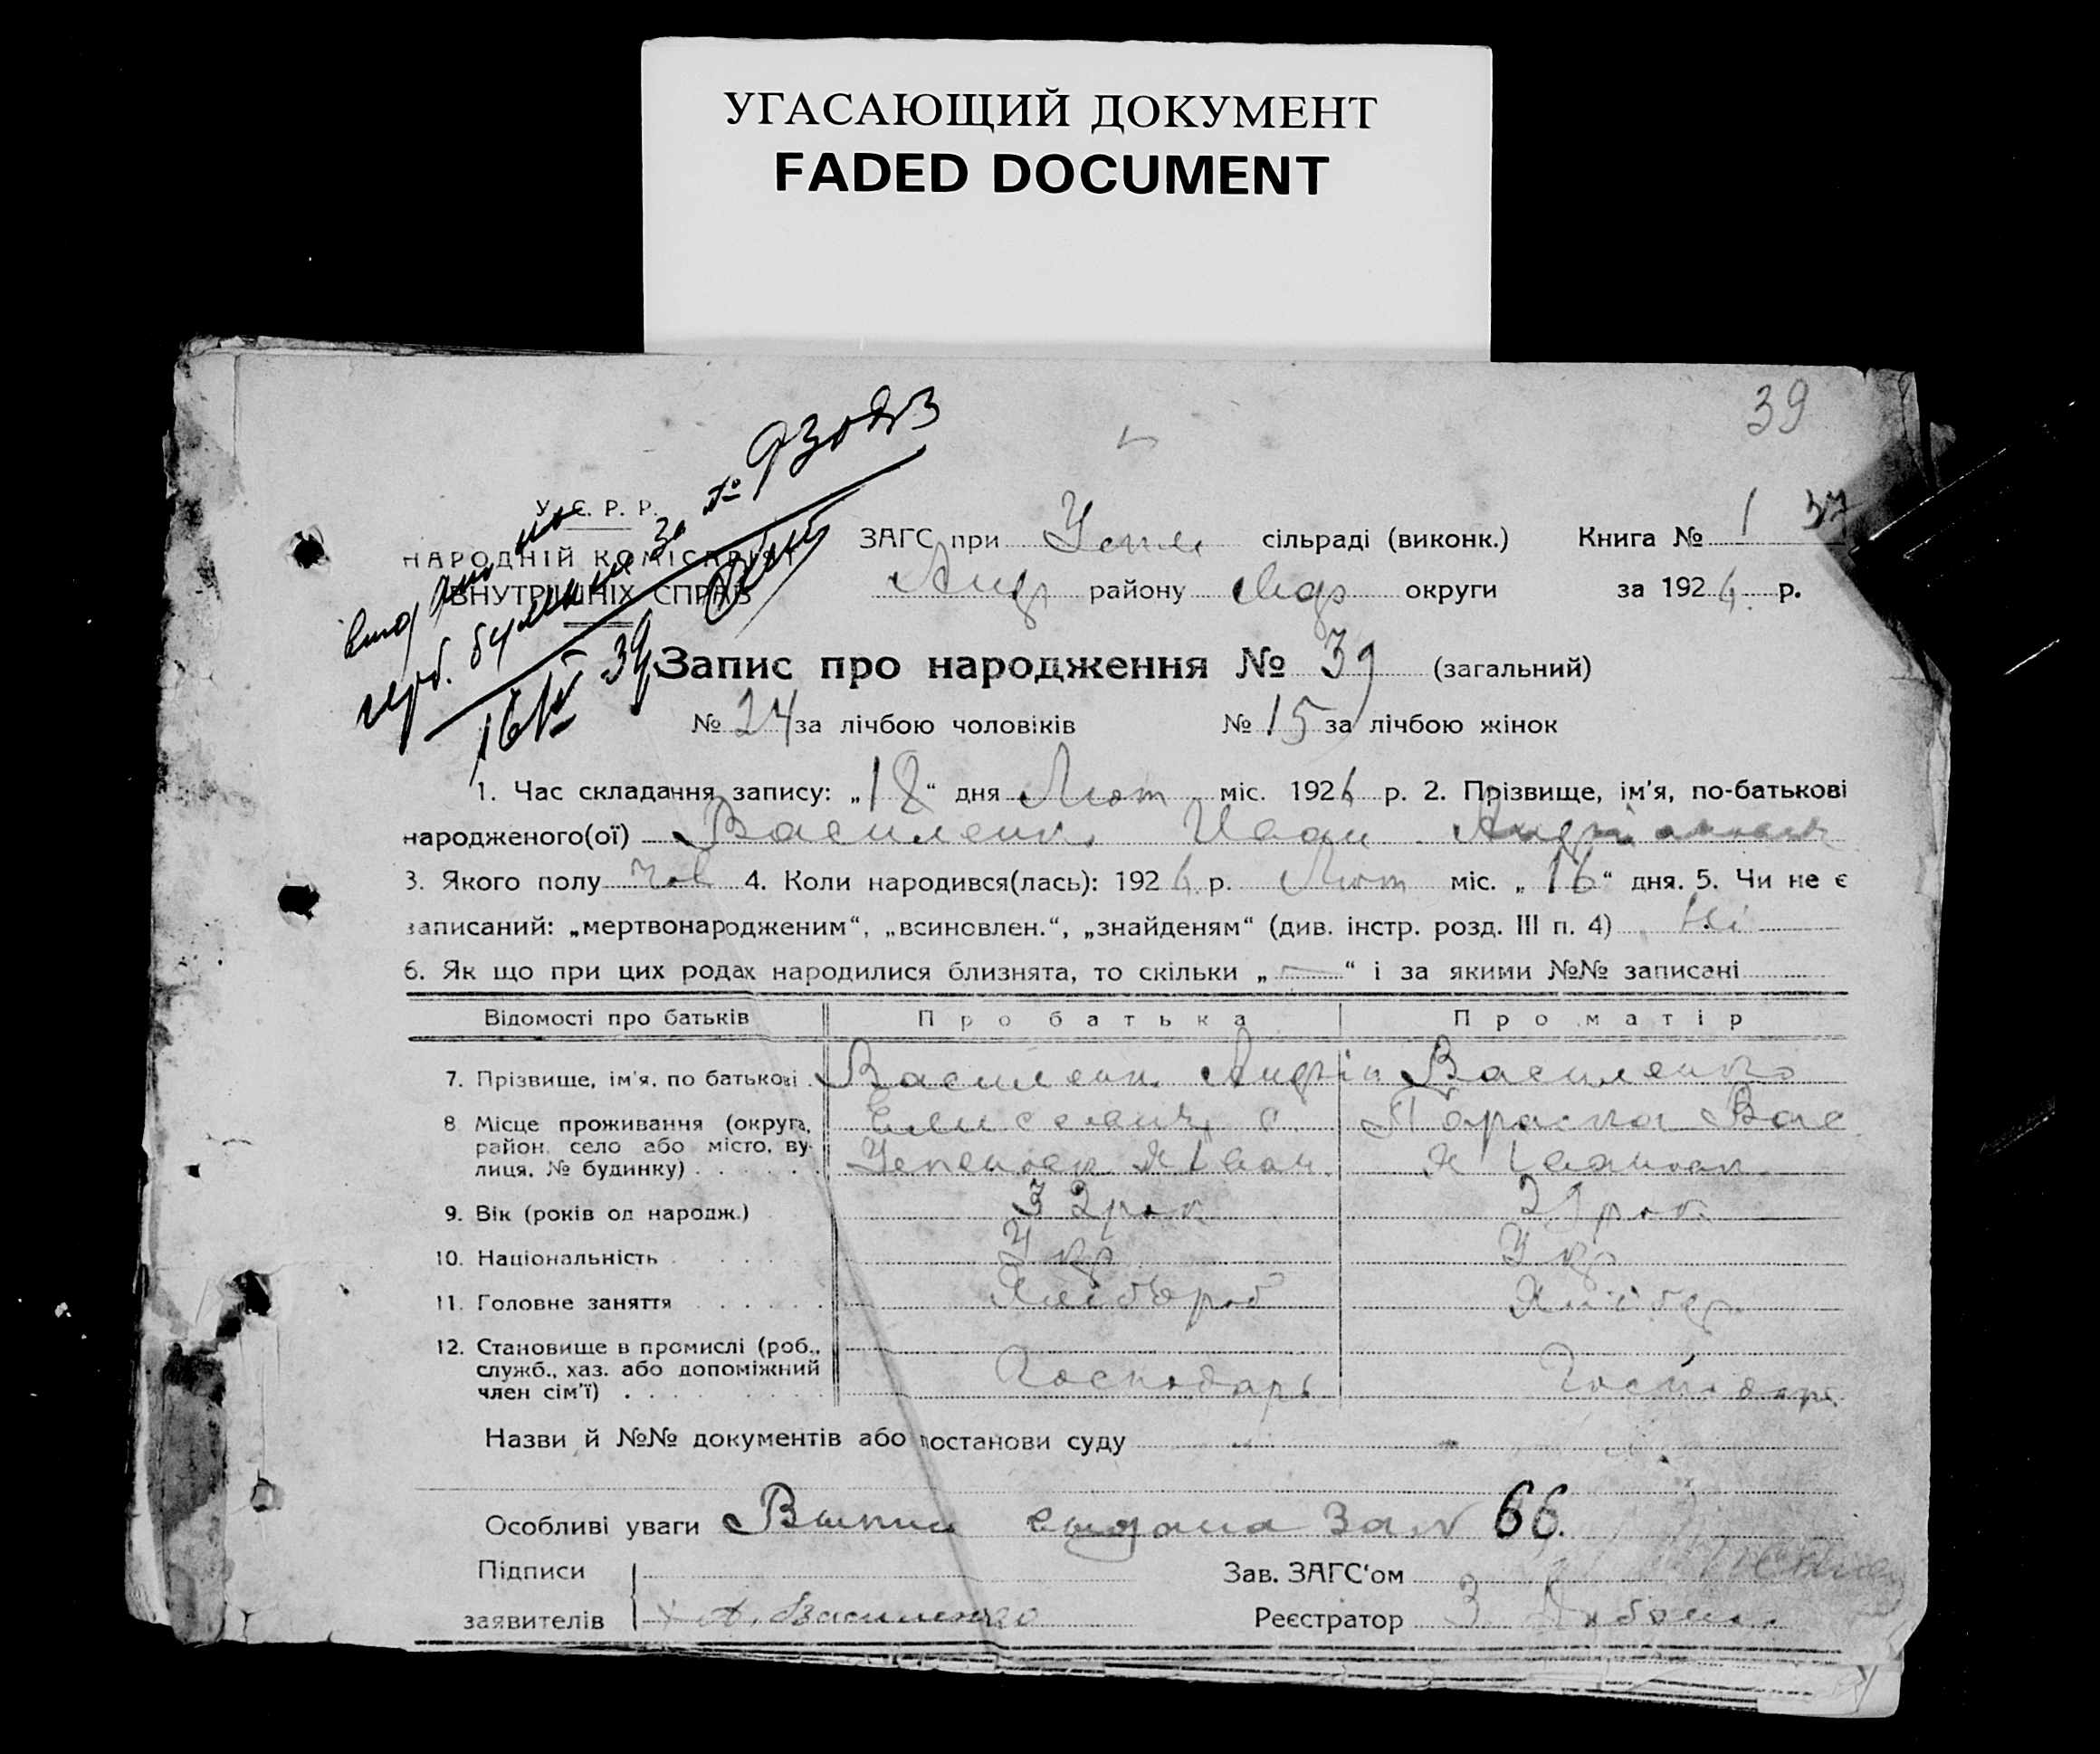 УГАСАЮЩИЙ ДОКУМЕНТ
FADED DOCUMENT
39
за № 93083
16/IV 39
У. С. Р. Р.
НАРОДНІЙ КОМІСАРІЯТ
ВНУТРІШНІХ СПРАВ
ЗАГС при Успен сільраді (виконк.) Книга № 1 37
Андр району округи за 1926 р.
Запис про народження № 39 (загальний)
№ 24 за лічбою чоловіків № 15 за лічбою жінок
1. Час складання запису: „18“ дня Лют міс. 1926 р. 2. Прізвище, ім'я, по-батькові
народженого(ої) Василенко Иван
3. Якого полу чол 4. Коли народився(лась): 1926 р. Лют міс. „16“ дня. 5. Чи не є
записаний: „мертвонародженим“, „всиновлен.“, „знайденям“ (див. інстр. розд. III п. 4) Ні
6. Як що при цих родах народилися близнята, то скільки „—“ і за якими №№ записані
Відомості про батьків Про батька Про матір
7. Прізвище, ім'я, по батькові Василенко Андрій Василенко
8 Місце проживання (округа, Елисеевич с. Параска Вас
район, село або місто, ву-
лиця, № будинку)
9. Вік (років од народж.) 32 рок 29 рок
10. Національність Укр Укр
11. Головне заняття Хлібороб Хлібор
12. Становище в промислі (роб.,
служб., хаз. або допоміжний Господарь Господарь
член сім'ї)
Назви й №№ документів або постанови суду
Особливі уваги Выпись выдана за № 66.
Підписи Зав. ЗАГС'ом
заявителів А. Василенко Реєстратор